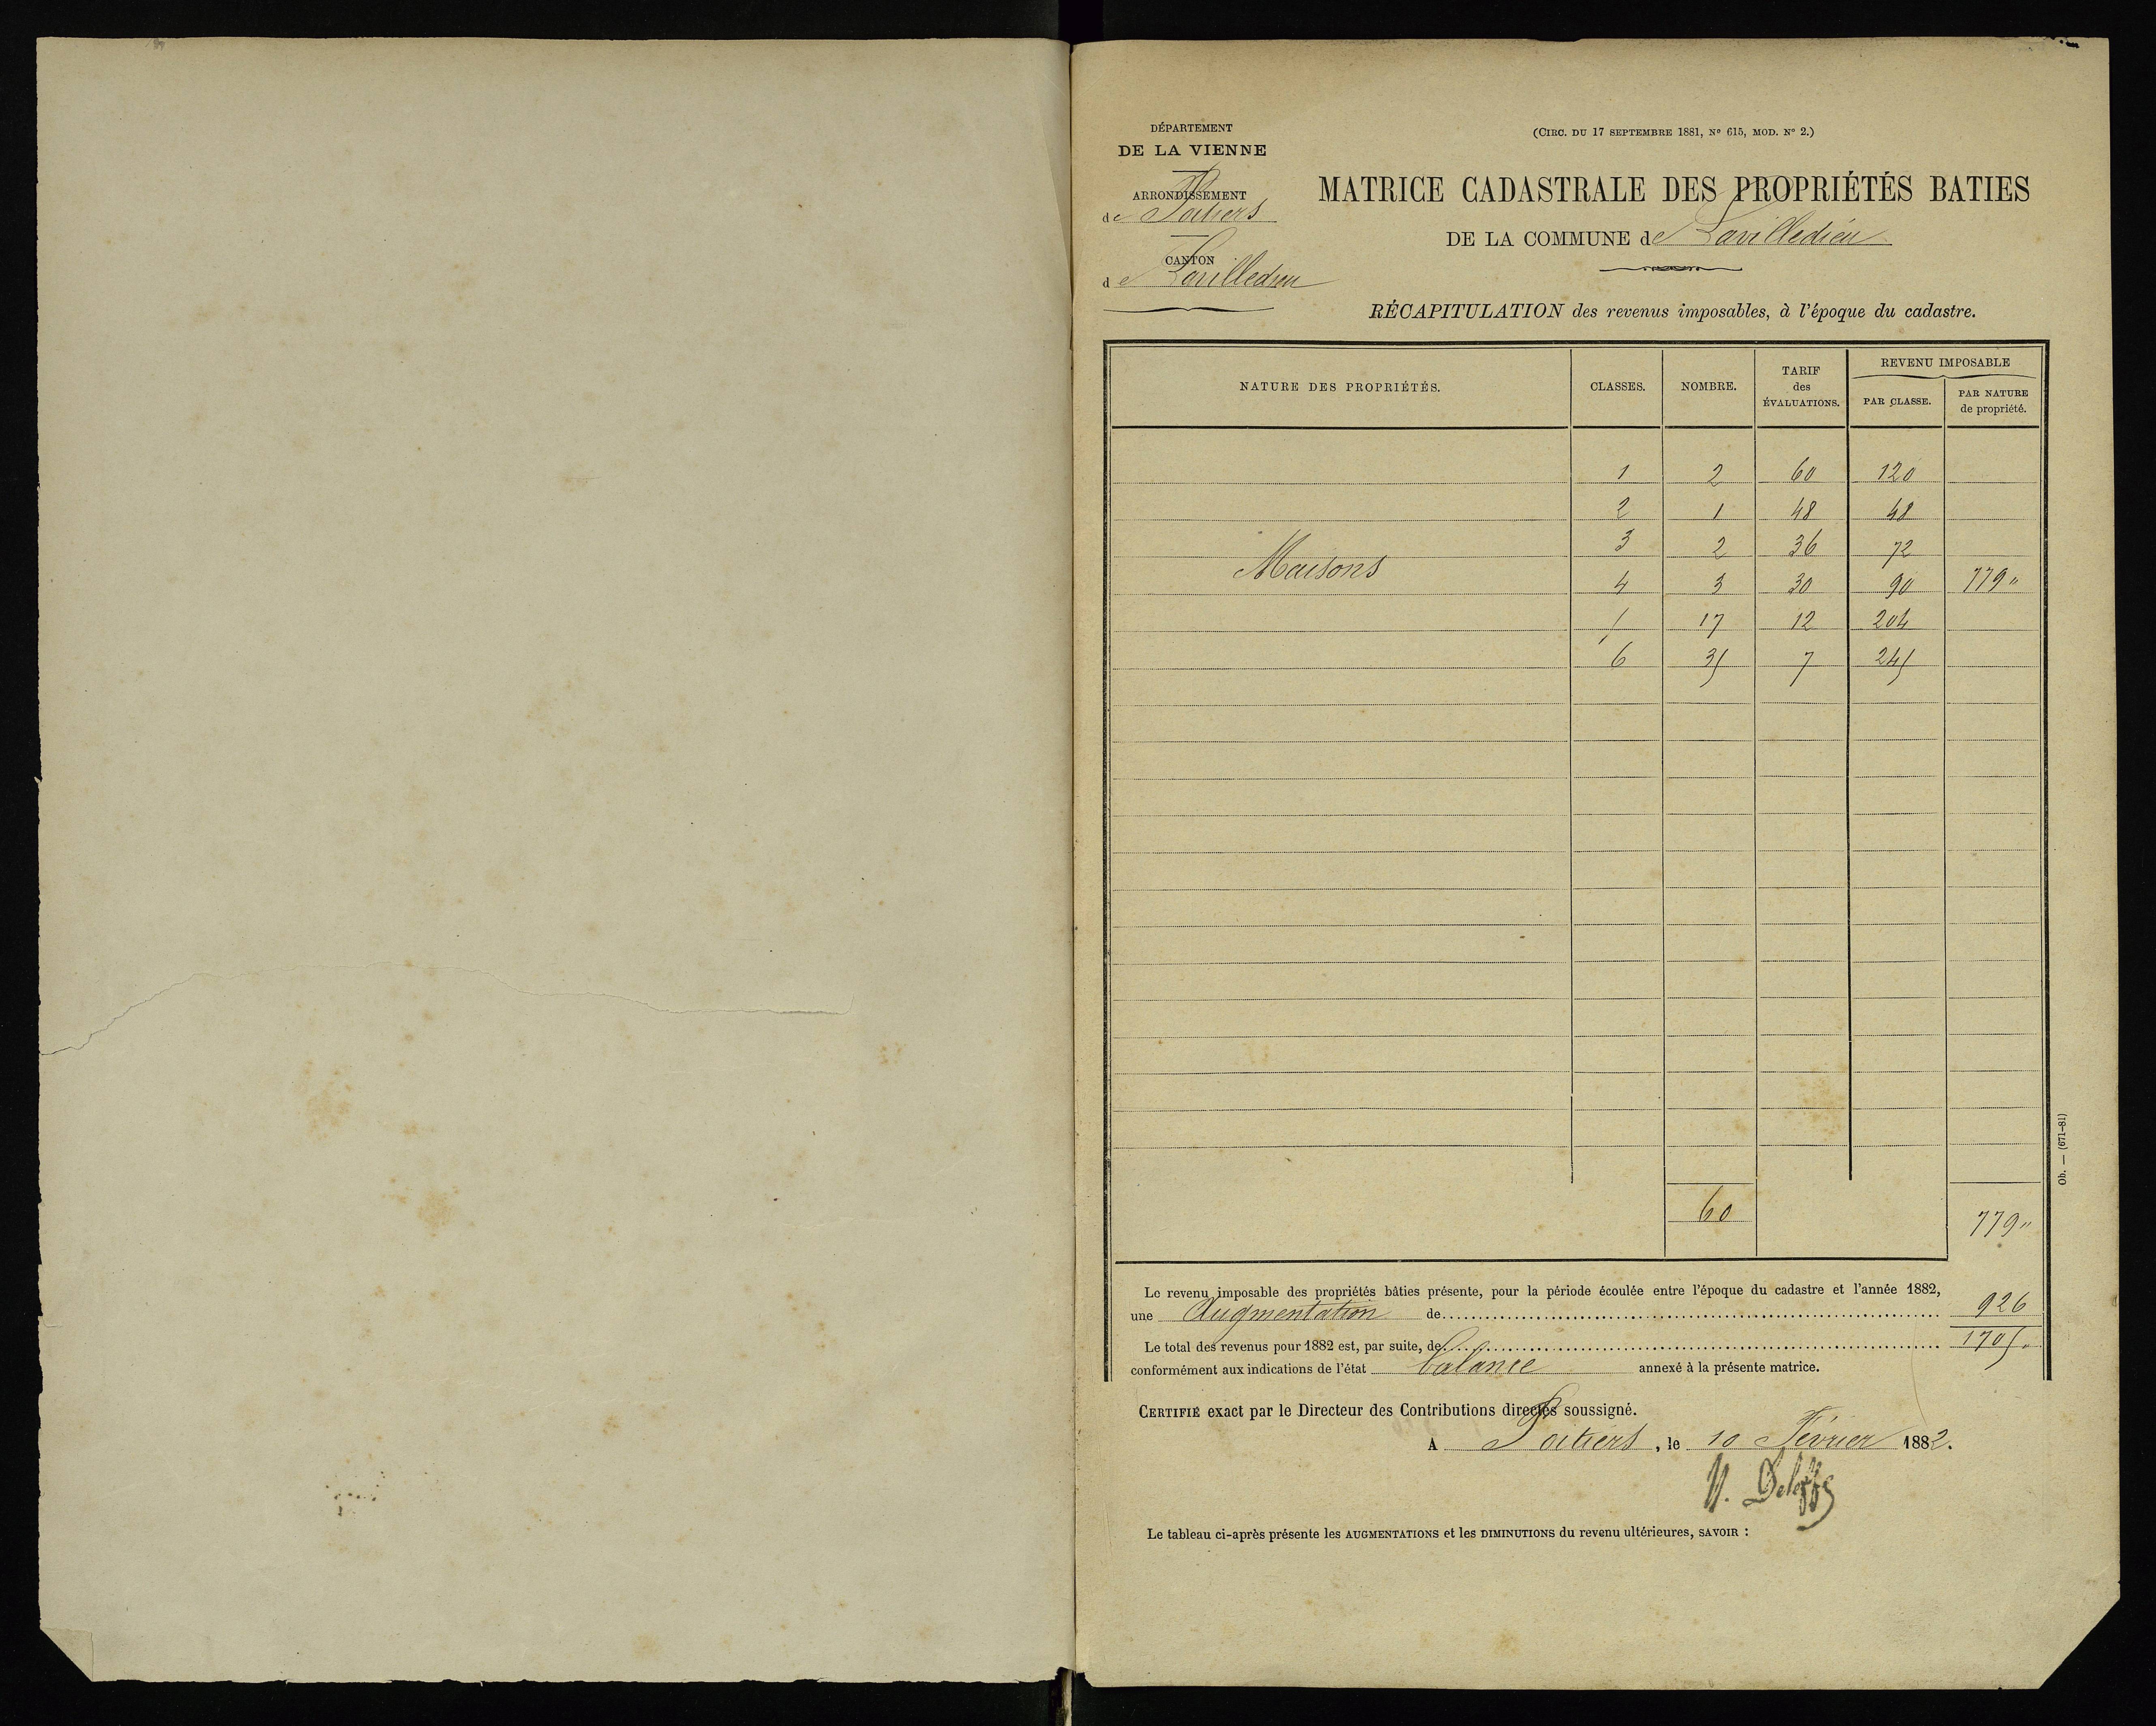 DÉPARTEMENT
DE LA VIENNE
ARRONDISSEMENT
de Poitiers
CANTON
de Lavilledieu
(CIRC. DU 17 SEPTEMBRE 1881, Nº 615, MOD. Nº 2.)
MATRICE CADASTRALE DES PROPRIÉTÉS BATIES
DE LA COMMUNE de Lavilledieu
RÉCAPITULATION des revenus imposables, à l'époque du cadastre.
NATURE DES PROPRIÉTÉS. CLASSES. NOMBRE. TARIF des ÉVALUATIONS. REVENU IMPOSABLE PAR CLASSE. PAR NATURE de propriété.
1 2 60 120
2 1 48 48
3 2 36 72
Maisons 4 3 30 90 779 "
5 17 12 204
6 35 7 245
60 779 "
Le revenu imposable des propriétés bâties présente, pour la période écoulée entre l'époque du cadastre et l'année 1882,
une Augmentation de 926
Le total des revenus pour 1882 est, par suite, de 1705 "
conformément aux indications de l'état balance annexé à la présente matrice.
CERTIFIÉ exact par le Directeur des Contributions directes soussigné.
A Poitiers, le 10 Février 1882.
Le tableau ci-après présente les AUGMENTATIONS et les DIMINUTIONS du revenu ultérieures, SAVOIR :
Ob. — (671-81)